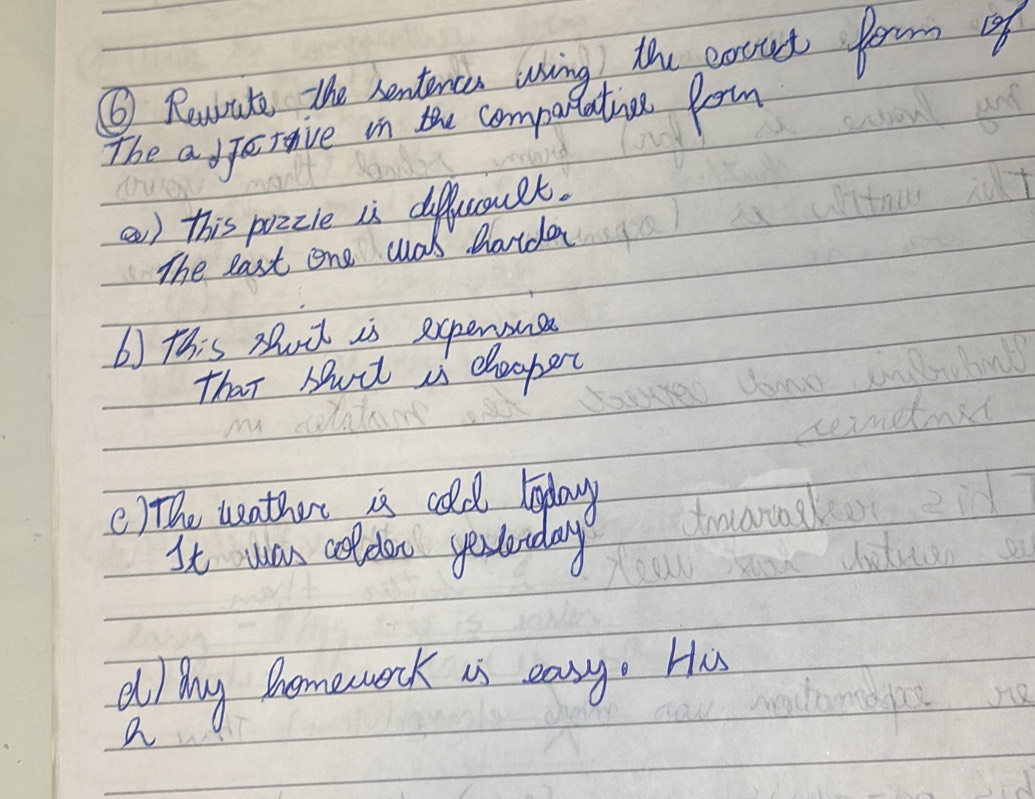 ⑥ Rewrite the sentences using the correct form of
The adjective in the comparative form
a) this puzzle is difficult.
The last one was harder
b) This shirt is expensive
That shirt is cheaper
c) The weather is cold today
It was colder yesterday
d) My homework is easy. His
h